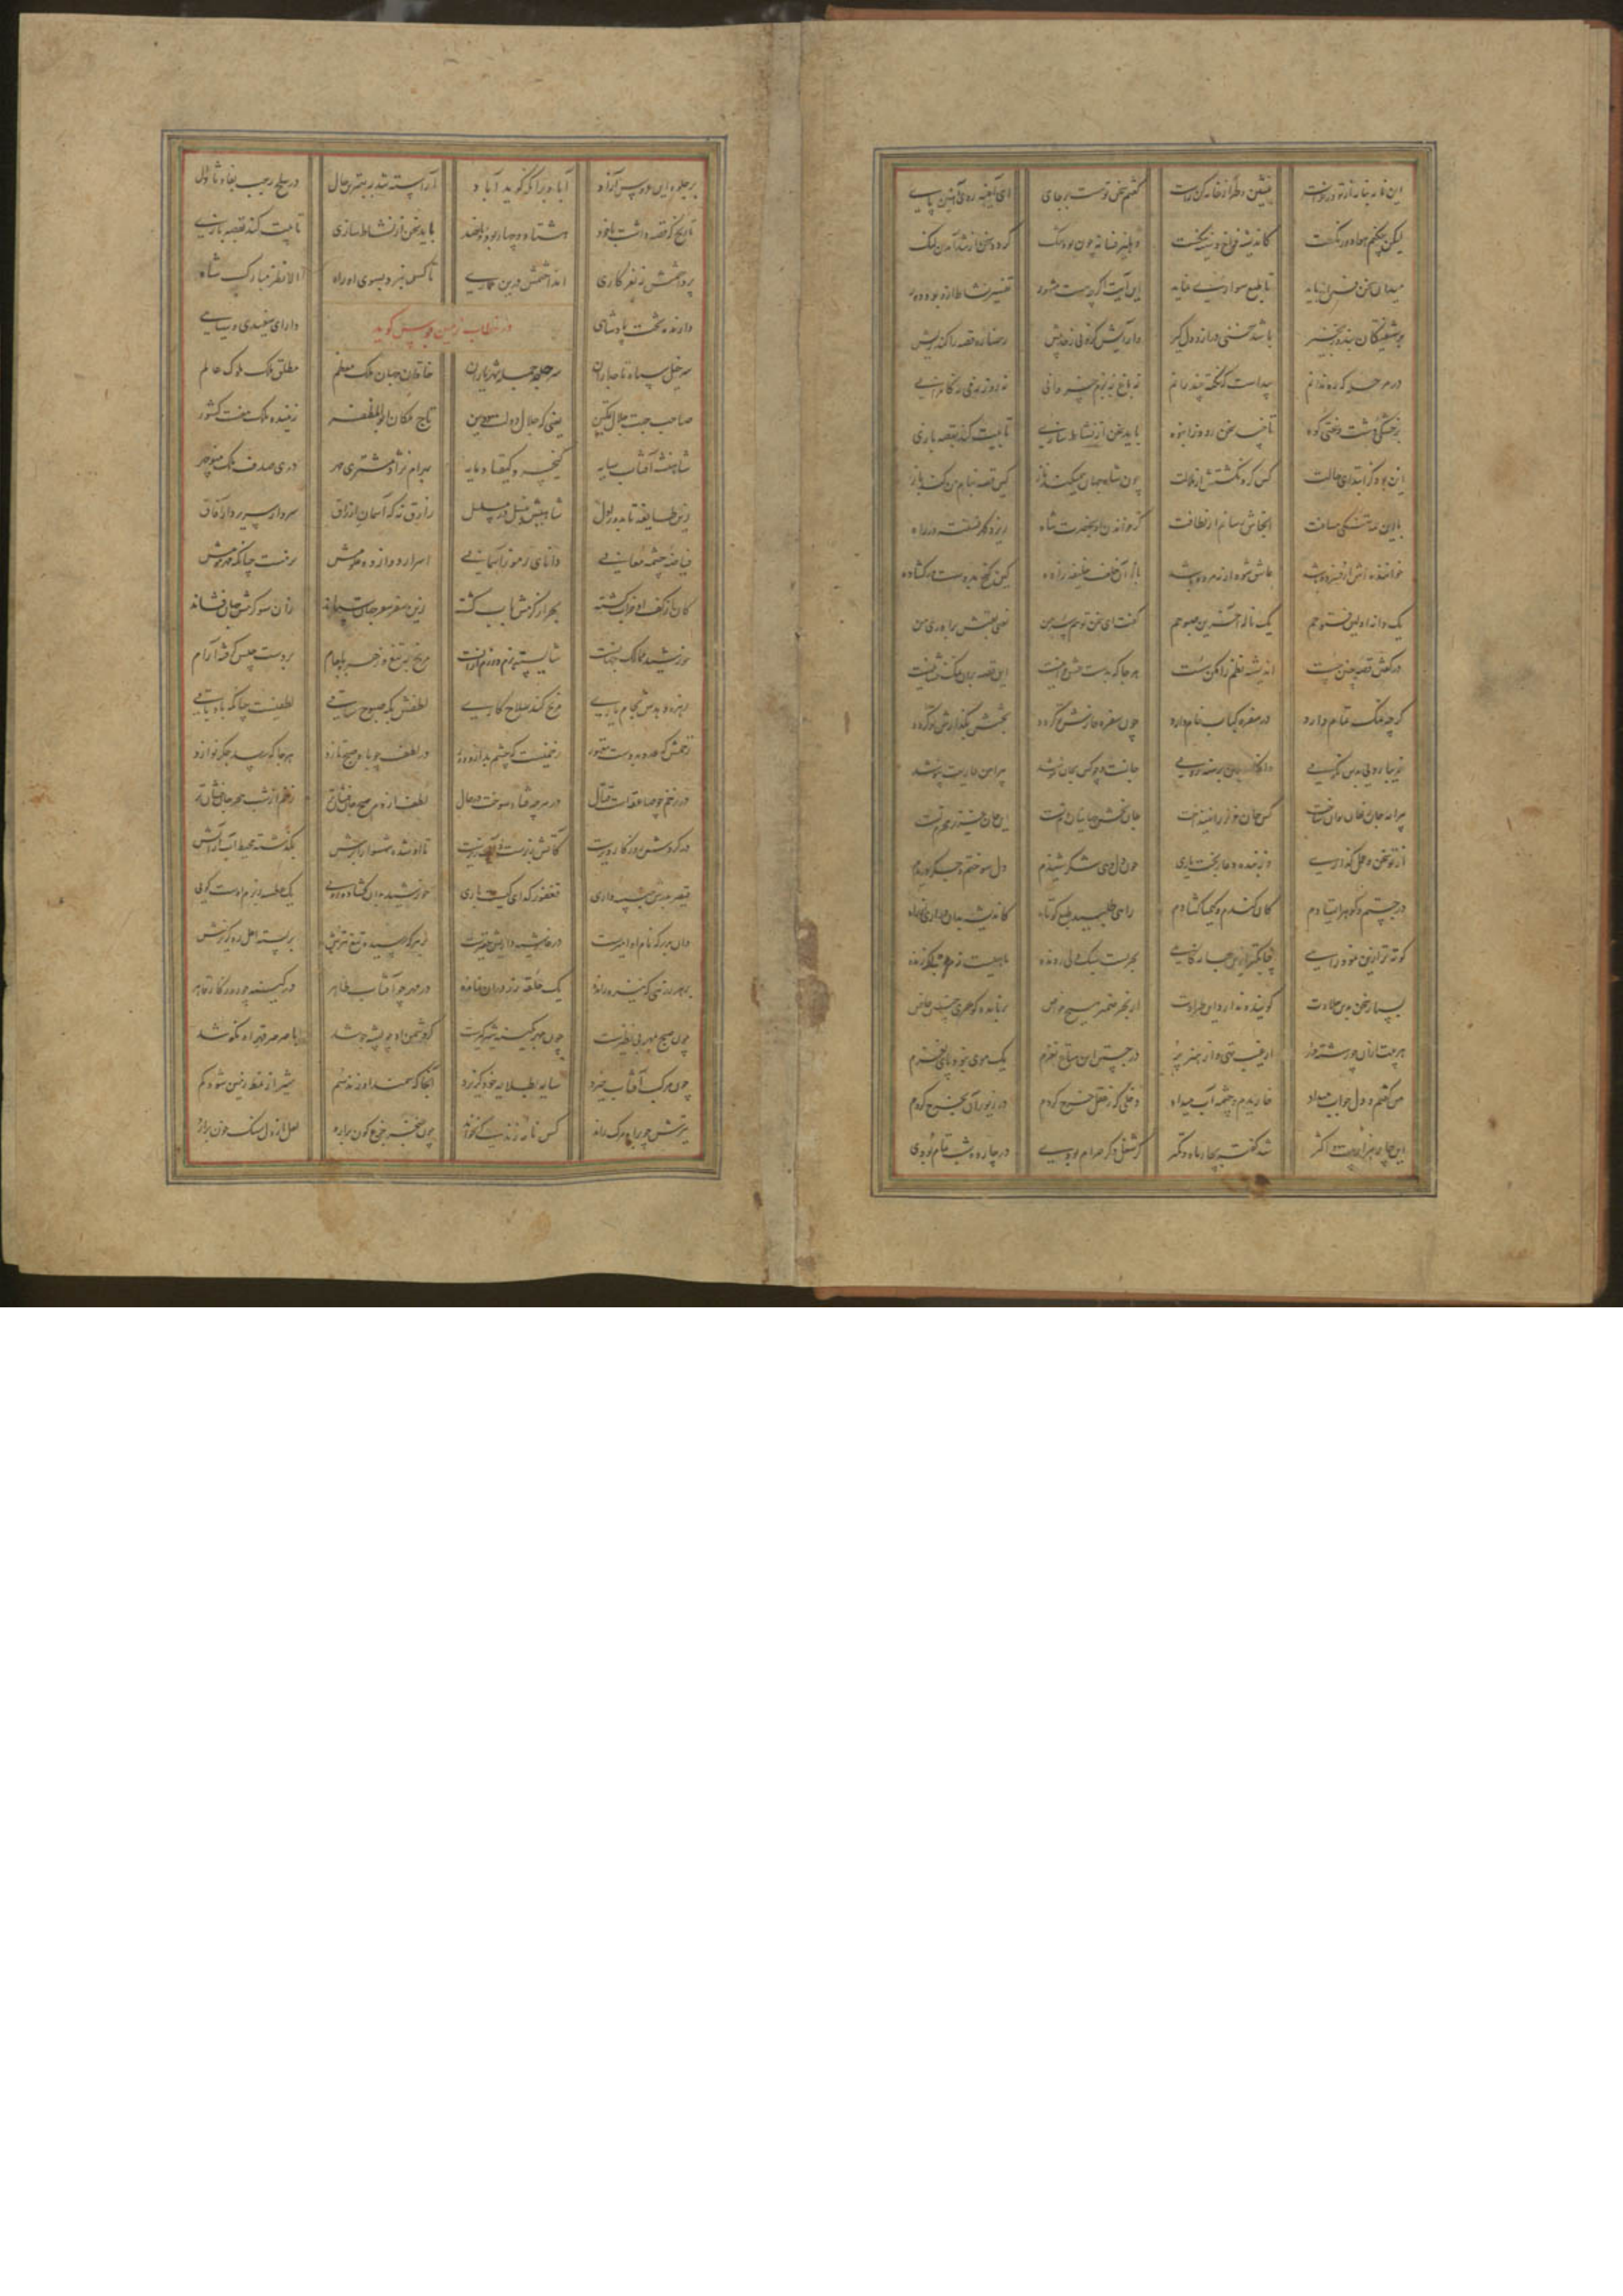 این نامه بنامه از تو درخواست بنشین و طراز نامه کن راست گفتم سخن تو هست بر جای ای آینه روی آهنین پای
لیکن چکنم هوا دو رنگست کاندیشه فراخ و سینه تنگست دهلیز فسانه چون بود تنگ گردد سخن از شد آمدن لنگ
میدان سخن فراخ باید تا طبع سواریی نماید این آیت اگر چه هست مشهور تفسیر نشاط ازو بود دور
بر شیفتگی و بند و زنجیر باشد سخنی دراز و دلگیر وارایش کردنی ز حد بیش رخساره قصه را کند ریش
در مرحله که ره ندانم پیداست که نکته چند رانم نه باغ و نه بزم خسروانی نه رود و نه می نه کامرانی
بر خشکی دشت و سختی کوه تا چند سخن رود در انبوه باید سخن از نشاط سازی تا بیت کند بقصه بازی
این بود کز ابتدای حالت کس گرد نگشتش از ملالت چون شاه جهان همیکند ناز کین قصه بنام من کن باز
با این همه تنگی مسافت آنجاش رسانم از لطافت کز خواندن او بحضرت شاه ریزد گهر نسفته در راه
خواننده اش ار فسرده باشد عاشق شود ار نه مرده باشد باز آن خلف خلیفه زاده کین گنج بدوست در گشاده
یک دانه اولین فتوحم یک لاله آخرین صبوحم گفت ای سخن تو همسر من یعنی لقبش برادر من
در گفتن قصه چنین چست اندیشه نظم را مکن سست هر جا که بدست عشق خوانیست این قصه برو نمک فشانیست
گرچه نمک تمام دارد در سفره کباب خام دارد چون سفره خارش تو گردد پختش بگذارش تو گردد
زیبا رویی بدین نکویی برهنه رویی جانست و چو کس بجان نکوشد پیراهن عاریت نپوشد
پیرایه جان ز جان توان ساخت کس جان عزیز را نینداخت جان بخش جهانیان دم تست این جان عزیز محرم تست
از تو سخن و عمل گذاری وز بنده دعا ز بخت یاری چون دل دهی جگر شنیدم دل سوختم و جگر دریدم
در جستن گوهر ایستادم کان کندم و کیمیا گشادم راهی طلبید طبع کوتاه کاندیشه بد از درازی راه
کوته تر ازین نبود راهی چابکتر ازین بحریست سبک ولی رونده ماهیش نه مرده بلکه زنده
بسیار سخن بدین حلاوت گویند و ندارد این طراوت زین بحر ضمیر هیچ غواص بر نارد گوهری چنین خاص
هر بیت ازان چو رشته در از عیب تهی و از هنر پر در جستن این متاع نغزم یک موی نبود پای لغزم
می گفتم و دل جواب میداد خاریدم و چشمه آب میداد دخلی که ز عقل خرج کردم در زیور آن بخرج کردم
این چار هزار بیت و اکثر شد گفته بچار ماه و کمتر گر شغل دگر حرام بودی در چارده شب تمام بودی
بر جلوه این عروس آزاد آباد برآنکه گوید آباد آراسته شد ببهترین حال در سلخ رجب بفا و ثا دال
تاریخ که قصه داشت با خود هشتاد و چهار بود و پانصد باید سخن از نشاط سازی تا بیت کند بقصه بازی
پرداختمش ز نغز کاری انداختمش درین عماری تا کس نبرد بسوی او راه الا نظر مبارک شاه
دارنده تخت پادشاهی در خطاب زمین بوس گوید دارای سفیدی و سیاهی
سر خیل سپاه تاجداران سر جمله جمله شهریاران خاقان جهان ملک معظم مطلق ملک ملوک عالم
صاحب جهت جلال و تمکین یعنی که جلال دولت و دین تاج ملکان ابوالمظفر زیبنده ملک هفت کشور
شاهنشه آفتاب سایه کیخسرو کیقباد پایه بهرام نژاد و مشتری مهر دری صدف ملک منوچهر
زین طایفه تا بدور اول شاهیش بنسل در مسلسل رازق نه که آسمان ارزاق سردار و سریر دار آفاق
فیاضه چشمه معانی دانای رموز آسمانی اسرار دوازده علومش نرمست چنانکه مهر مومش
کان از کف او خراب گشته بحر از کرمش سراب گشته زین سو ظفرش جهان ستاند زان سو کرمش جهان فشاند
خورشید ممالک جهانست شایسته بزم و رزم ازانست مریخ بتیغ و زهره با جام بر دست چپش گرفته آرام
زهره دهدش بجام یاری مریخ کند سلاح کاری لطفش بگه صبوح ساقی لطفیست چنانکه باد باقی
زخمش که عدو بدوست مقهور زخمیست که چشم بد ازو دور در لطف چو باد صبح تازد هر جا که رسد جگر نوازد
در زخم چو صاعقه است قتال بر هر چه فتاد سوخت در حال لطف از دم صبح جان فشان تر زخم از شب هجر جان ستان تر
در گردش روزگار دیرست کاتش زبرست و آب زیرست تا او شده شهسوار ابرش بگذشته محیط آب از آتش
قیصر بدرش جنیبه داری فغفور گدای کیست باری خورشید بدان گشاده رویی یک عطسه بزم اوست گویی
وان بدر که نام او منیرست در غاشیه داریش حقیرست بر بسته اجل ره گریزش
یک حلقه ز زه در مهر چو آفتاب ظاهر در کینه چو روزگار قاهر
چون صبح بمهر بی نظیرست چون مهر بکینه شیرگیرست گر دشمن او چو پشه جوشد با صرصر قهر او نکوشد
چون مرکب آفتاب خیزد سایه بطلایه خود گریزد آنجا که سمند او زند سم شیر از نمط زمین شود گم
تیرش چو برات مرگ راند کس نامه زندگی نخواند چون خنجر جزع گون برآرد لعل از دل سنگ خون برآرد